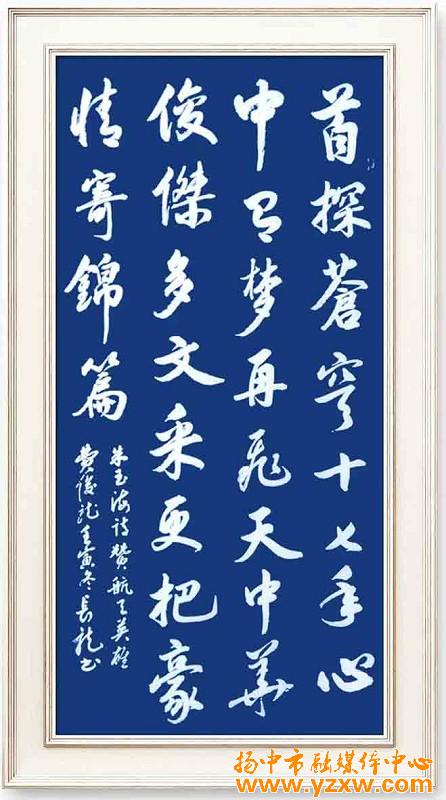 首探蒼穹十七年心
中有梦再飛天中華
俊傑多文采更把豪
情寄錦篇
朱玉海诗赞航天英雄
费俊龙壬寅冬長龍书
扬中市融媒体中心
www.yzxw.com